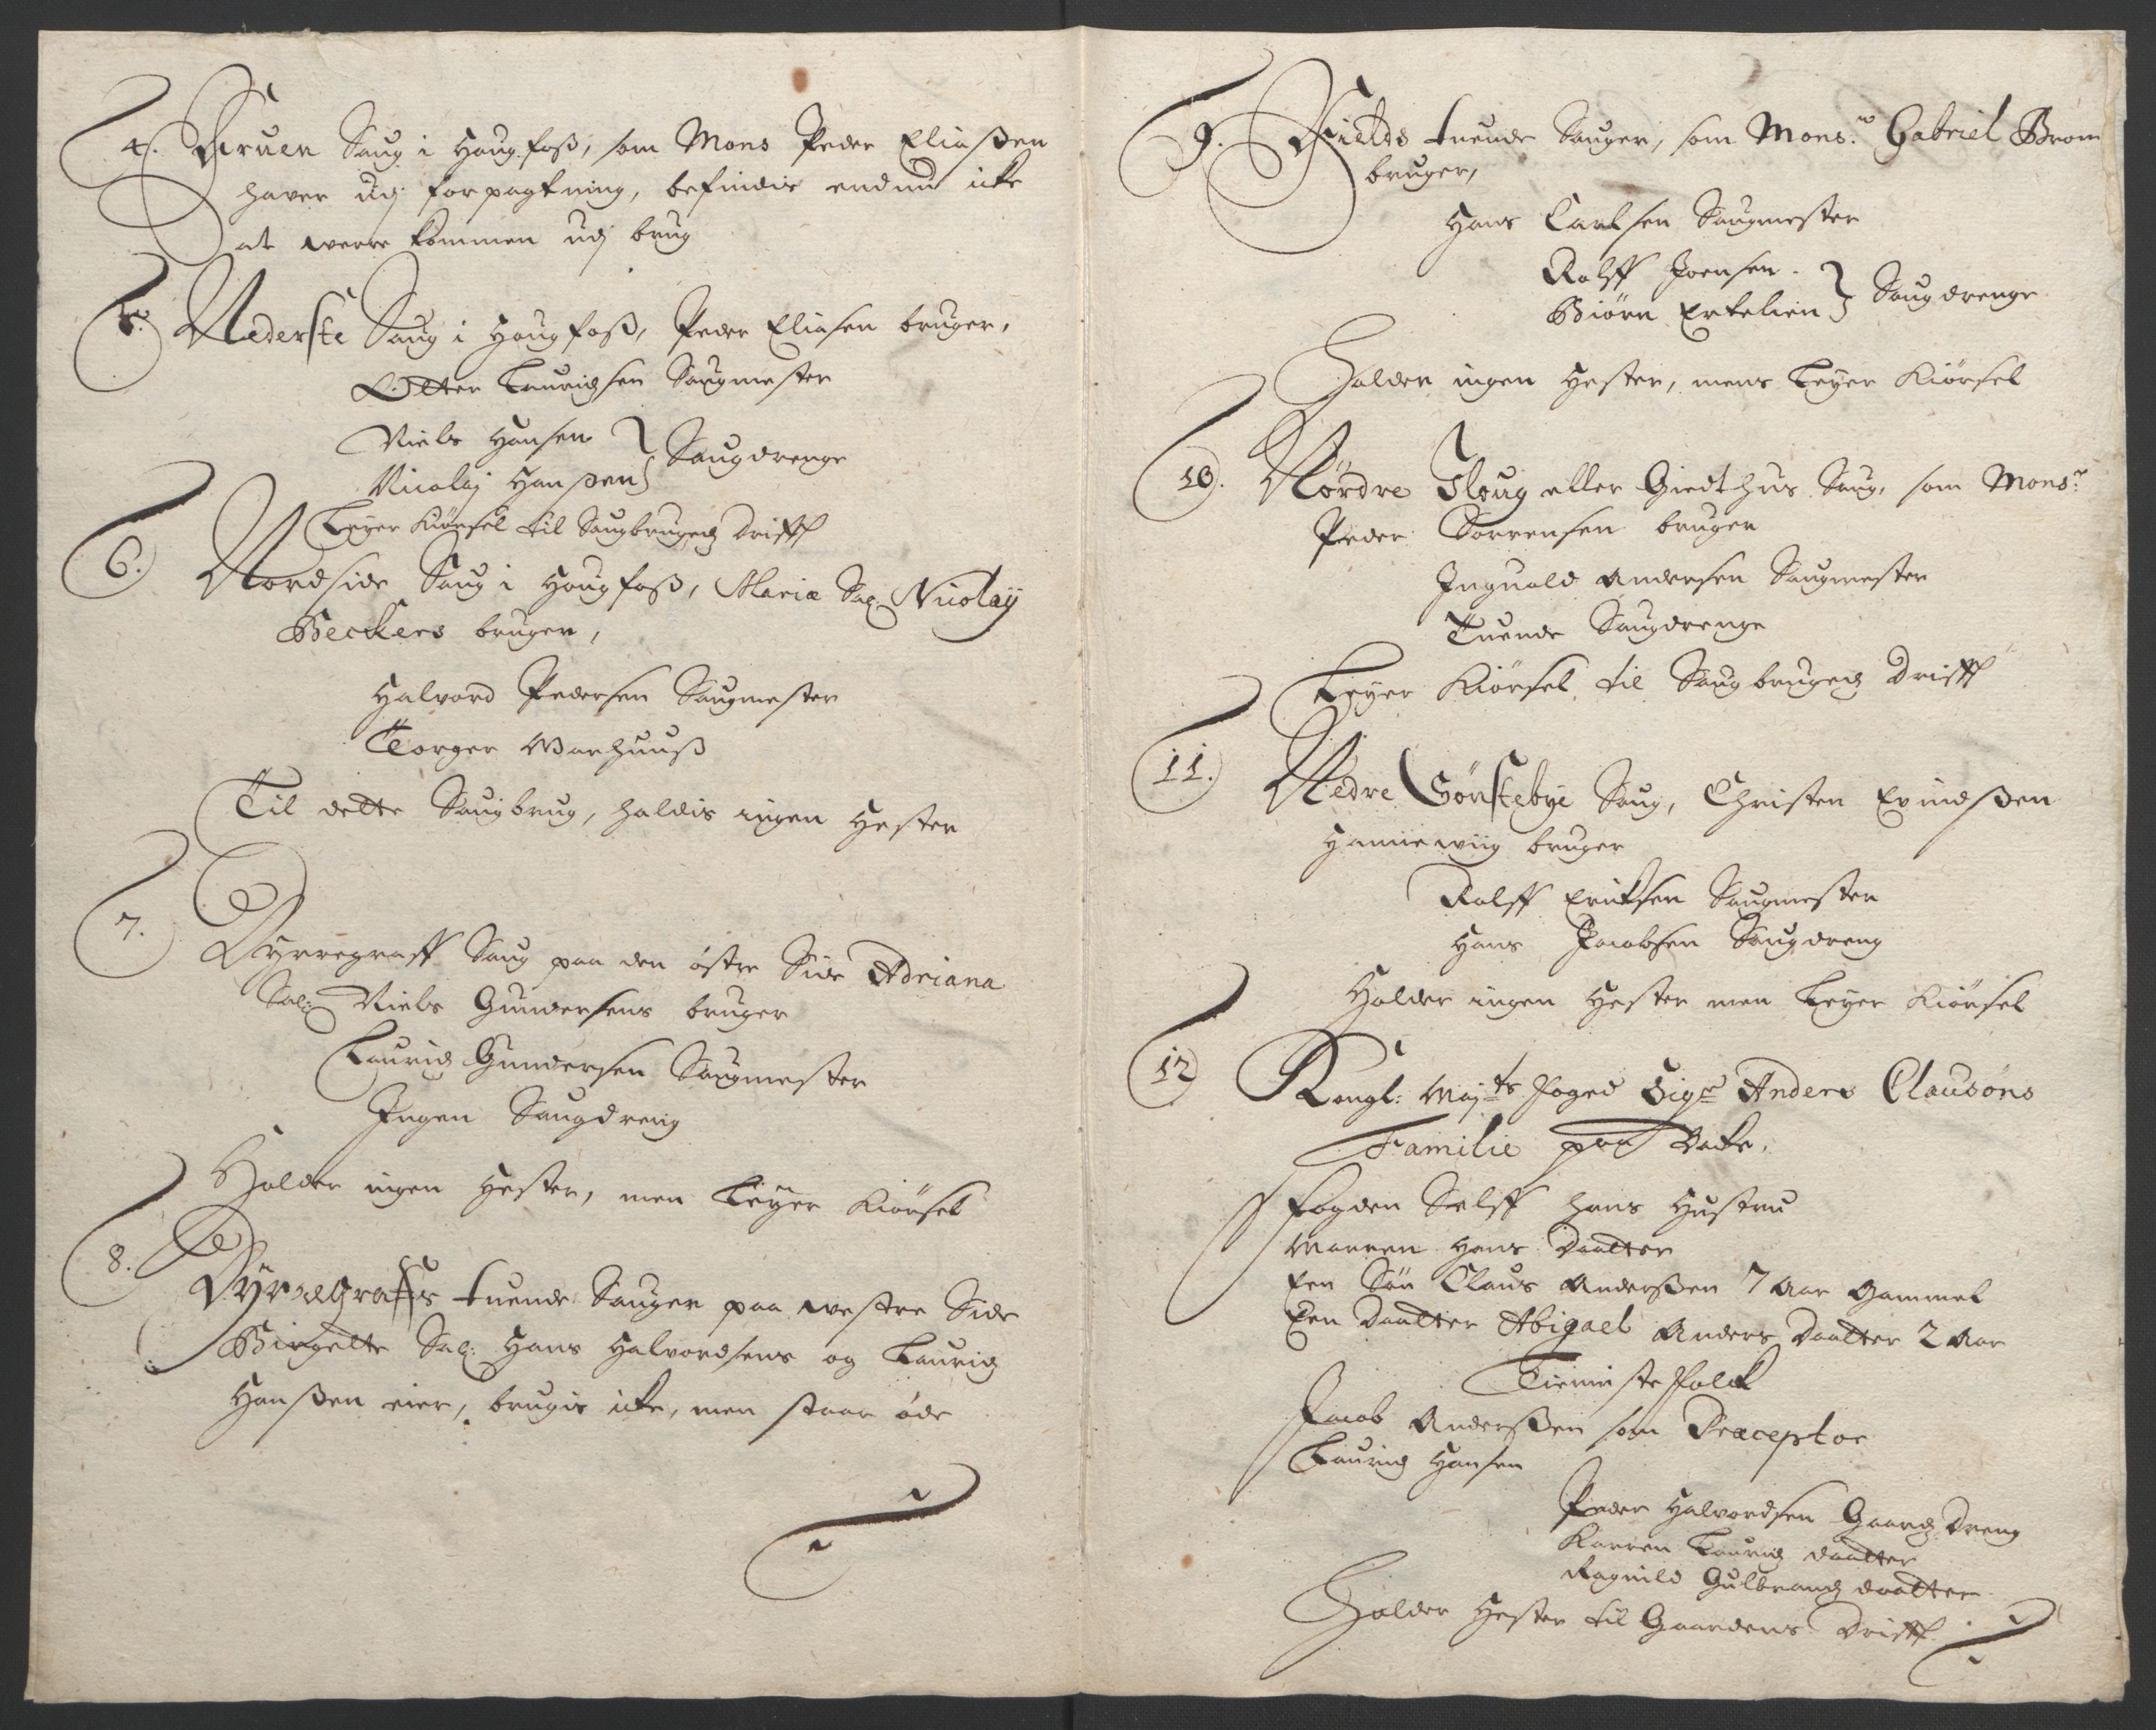 4. Saug i Haugfoß, som Mons Peder Eliaßen
haver udj forpagtning, befindis endnu icke
at werre kommen udj brug
5. Nederste Saug i Haugfoß, Peder Eliasen bruger,
Otter Lauridsen Saugmester
Niels Hansen
Nicolaj Hanßen } Saugdrenge
Leyer Kiørsel til Saugbrugedz Drifft
6. Nordside Saug i Haugfoß, Maria Sal: Nicolaij
Beckers bruger,
Halvord Pedersen Saugmester
Torger Warhuuß
Til dette Saugbrug, holdis ingen Hester
7. Dyrregraff Saug paa den østre Side Adriana
Sal: Niels Gundersens bruger
Lauridz Gundersen Saugmester
Ingen Saugdreng
Holder ingen Hester, men Leyer Kiørsel
8. Dyregraffs tuende Sauger paa westre Side
Birgitte Sal: Hans Halvordsens og Lauridz
Hanßen eier, brugis icke, men staar øde
9. Fields tuende Sauger, som Monsr. Gabriel Brom
bruger,
Hans Carlsen Saugmester
Rolff Joensen
Biørn } Saugdrenge
Holder ingen Hester, mens Leyer Kiørsel
10. Nordre Floug eller Giedthus Saug, som Monsr:
Peder Sørrensen bruger
Inguald Andersen Saugmester
Tuende Saugdrenge
Leyer Kiørsel til Saugbrugedz Drifft
11. Nedre Sønstebye Saug, Christen Evindßen
bruger
Rolff Erichsen Saugmester
Hans Jacobsen Saugdreng
Holder ingen Hester men Leyer Kiørsel
12 Kongl: Majts Foged Sigr Anders Clausøns
Familie paa
Fogden Selff hans Hustru
Marren Hans Daatter
Een Søn Claus Anderßen 7 Aar Gammel
Een Daatter Abigael Anders Daatter 2 Aar
Tienniste Folck
Jacob Anderßen som Præceptor
Lauridz Hansen
Peder Halvordsen Gaardz Dreng
Karren Lauridz daatter
Ragnild Gulbrandz daatter
Holder Hester til Gaardens Drifft